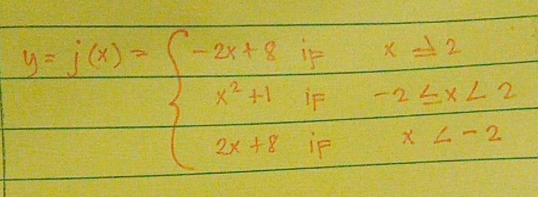 y = j(x) = { -2x + 8 if x ≥ 2
x² + 1 if -2 ≤ x < 2
2x + 8 if x < -2